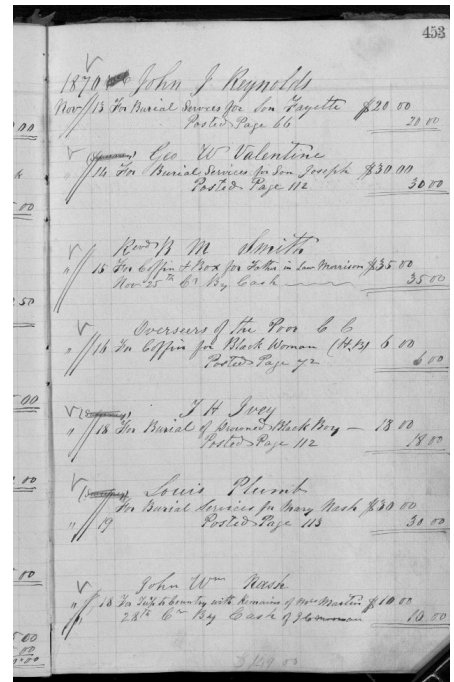 453
1870 John J Reynolds
Nov 13 For Burial Services for Son Fayette $20.00
Posted Page 66 20.00
Geo W Valentine
" 14 For Burial Services for Son Joseph $30.00
Posted Page 112 30.00
Revd R M Smith
" 15 For Coffin & Box for Father in Law Morrison $35.00
Nov 25th Cr By Cash 35.00
Overseers of the Poor C C
" 16 For Coffin for Black Woman (H.B) 6.00
Posted Page 72 6.00
T H Ivey
" 18 For Burial of drowned Black Boy — 18.00
Posted Page 112 18.00
Louis Plumb
For Burial Services for Mary Nash $30.00
" 19 Posted Page 113 30.00
John Wm Nash
" 18 For Trip to Country with Remains of Martin $10.00
28th Cr By Cash of 10.00
$149.00